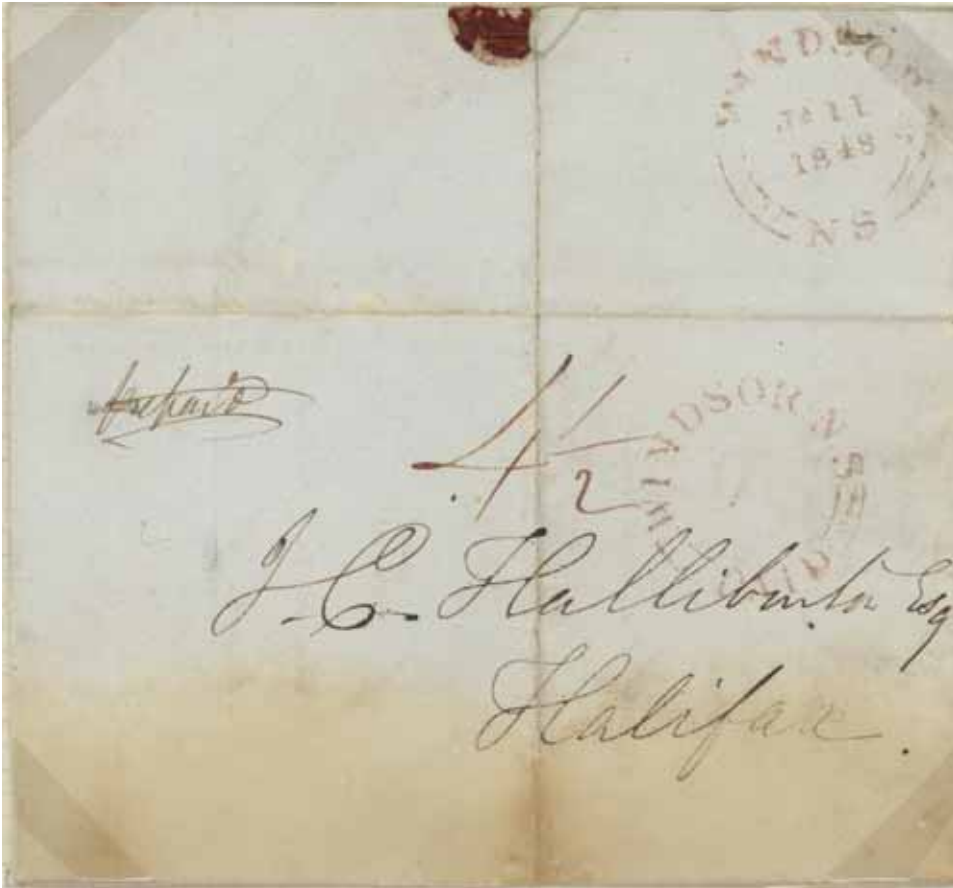 WINDSOR
JA 11
1848
NS
prepaid
4 1/2
WINDSOR NS
PAID
J. C. Halliburton Esq
Halifax.